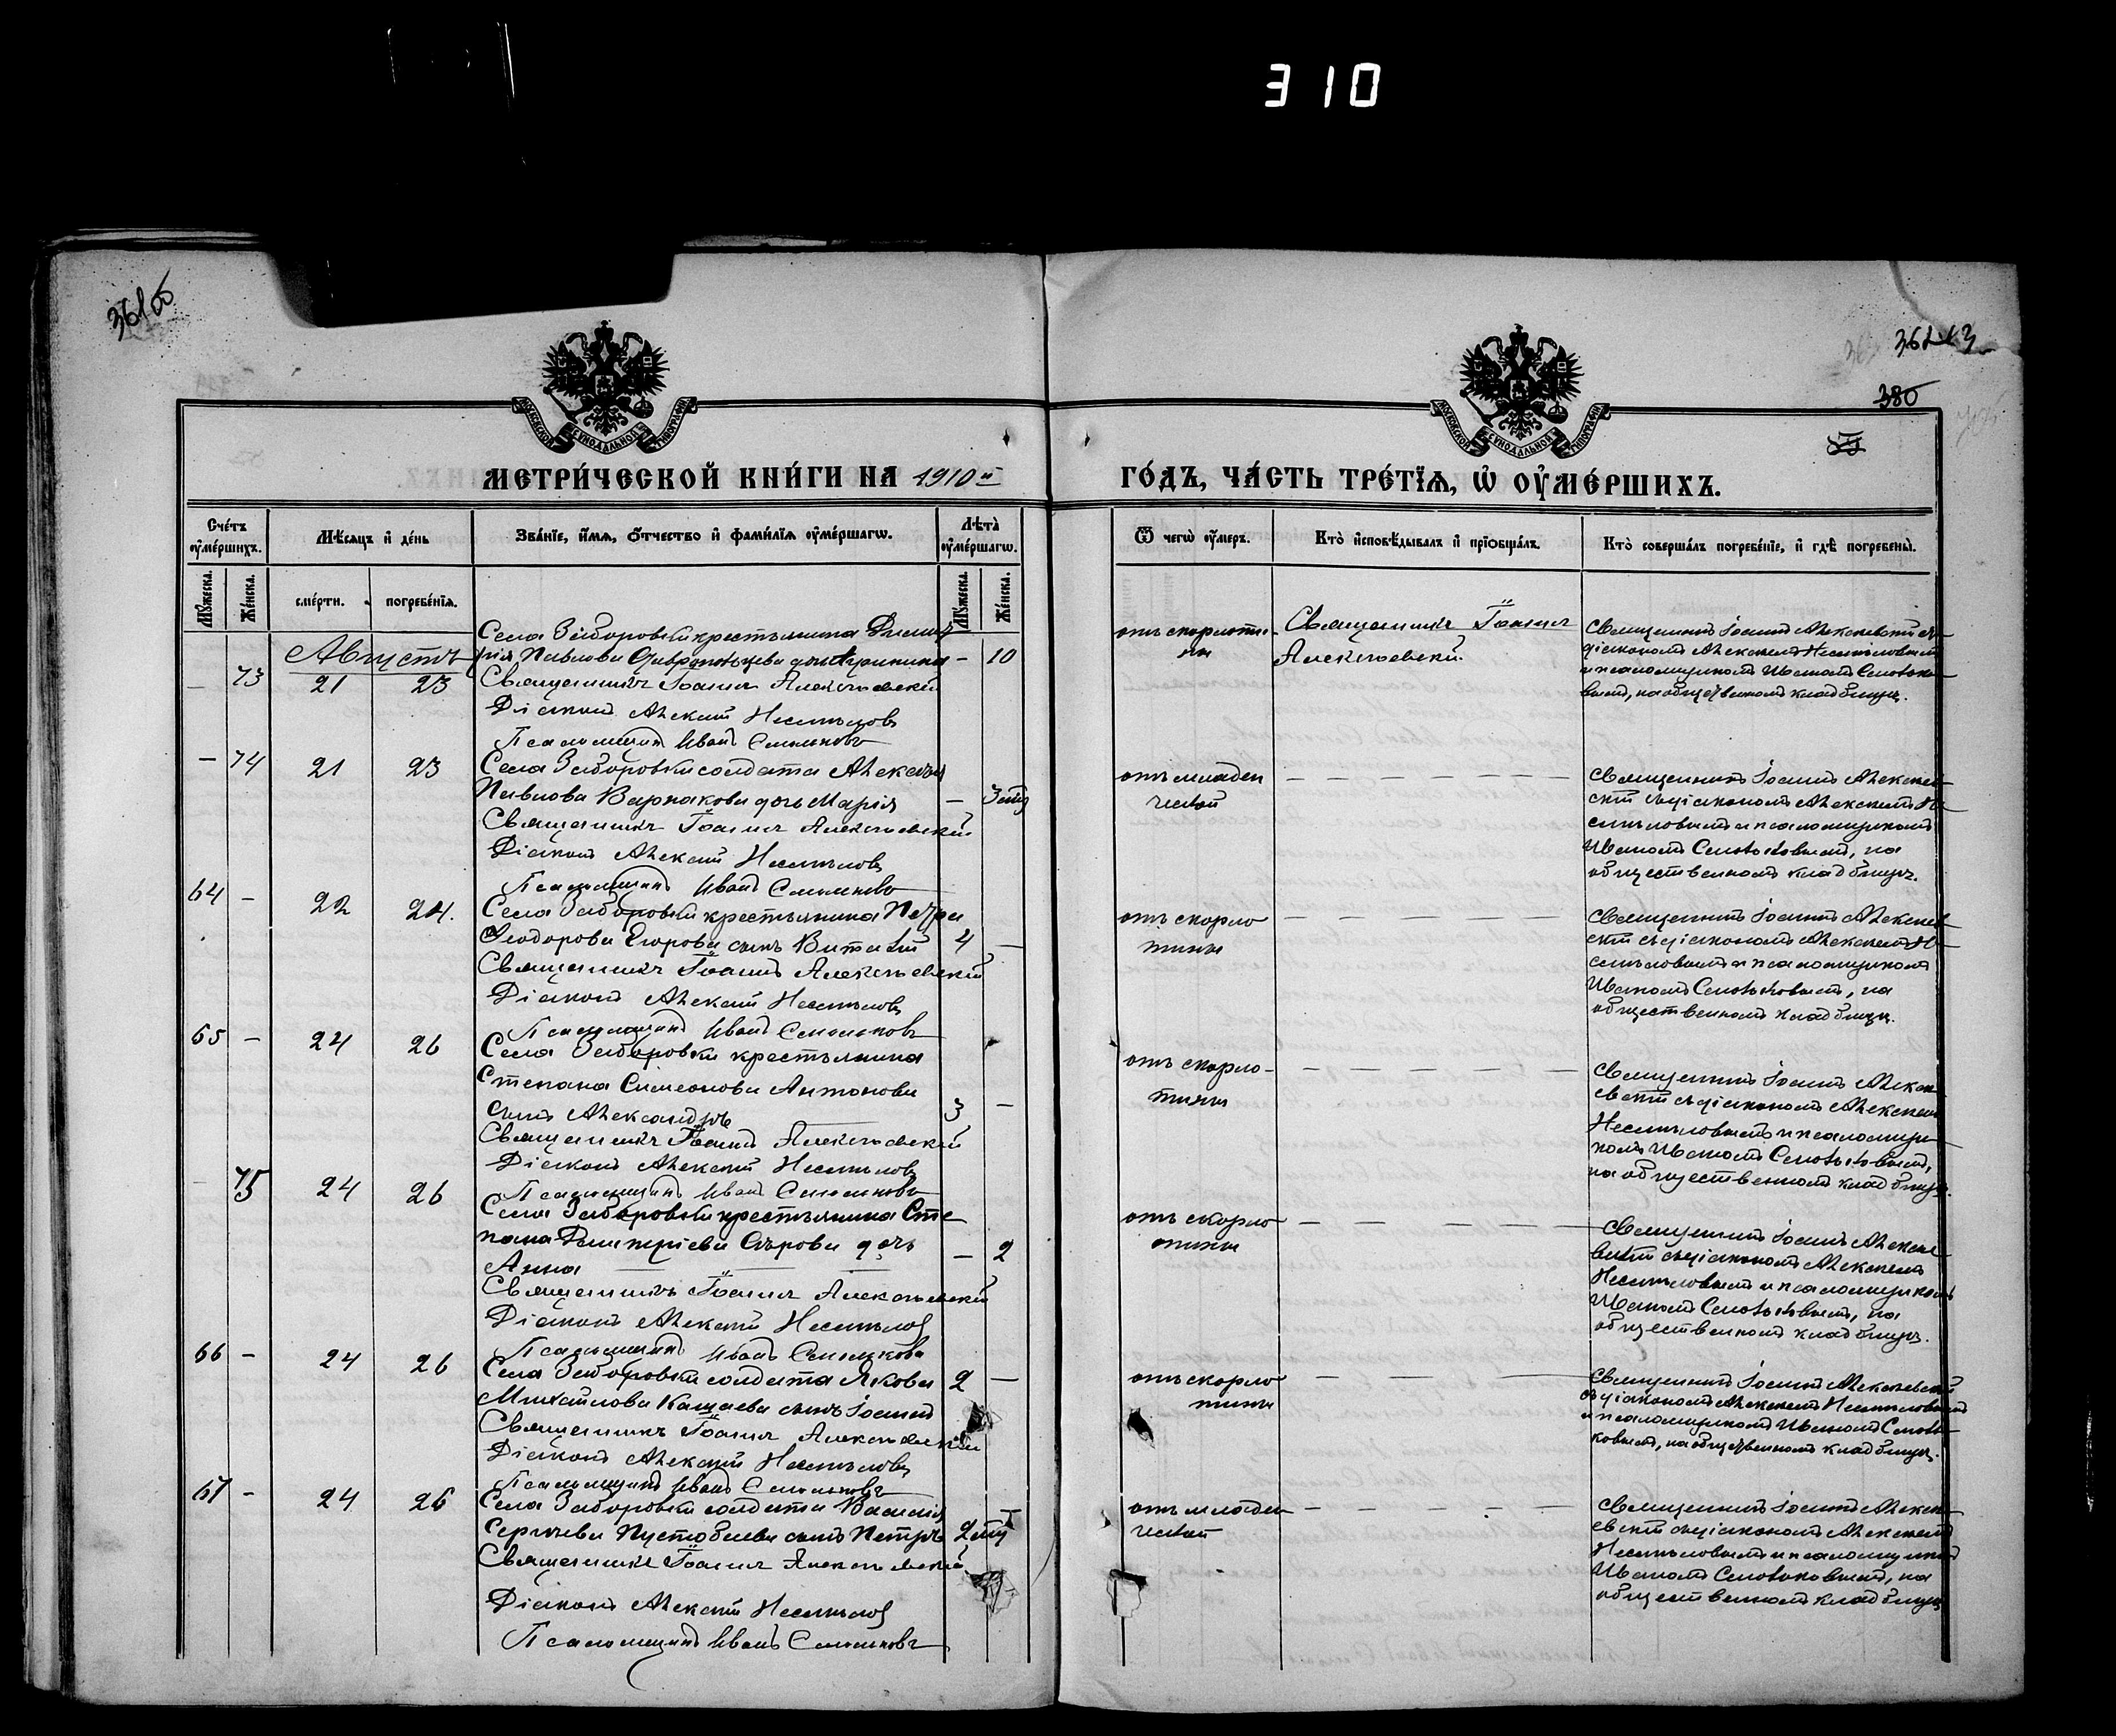 310
361об
362
380
МОСКОВСКОЙ СѴНОДАЛЬНОЙ ТИПОГРАФІИ
МОСКОВСКОЙ СѴНОДАЛЬНОЙ ТИПОГРАФІИ
МЕТРИ́ЧЕСКОЙ КНИ́ГИ НА 1910й
ГО́ДЪ, ЧА́СТЬ ТРЕ́ТІѦ, Ѡ҆ ОУ҆МЕ́РШИХЪ.
Сче́тъ оу҆ме́ршихъ.
Мѣ́сяцъ и҆ де́нь
Зва́нїе, и҆́мѧ, ѻ҆́тчество и҆ фами́лїѧ оу҆ме́ршагѡ.
Лѣ́та оу҆ме́ршагѡ.
Ѿ чегѡ̀ оу҆́меръ.
Кто̀ и҆сповѣ́дывалъ и҆ прїѻбща́лъ.
Кто̀ соверша́лъ погребе́нїе, и҆ гдѣ̀ погребены̀.
Мꙋ́жеска.
Же́нска.
сме́рти.
погребе́нїѧ.
Мꙋ́жеска.
Же́нска.
Августъ
Села Заборовки крестьянина Димит
рія Павлова дочь – 10
– 73 21 23 Священникъ Іоаннъ Алексѣевскій
Діаконъ Алексій Несмѣловъ
Псаломщикъ Иванъ
отъ скорлати-
ны
Священникъ Іоаннъ
Алексѣевскій
Священникъ Іоаннъ Алексѣевскій съ
діакономъ Алексѣемъ Несмѣловымъ
и псаломщикомъ Иваномъ
вымъ, на общественномъ кладбищѣ.
– 74 21 23 Села Заборовки солдата Алексѣя
Павлова Варнакова дочь Марія – 3
Священникъ Іоаннъ Алексѣевскій
Діаконъ Алексій Несмѣловъ
Псаломщикъ Иванъ
отъ младен
ческой
Священникъ Іоаннъ Алексѣев
скій съ діакономъ Алексѣемъ Не
смѣловымъ и псаломщикомъ
Иваномъ на
общественномъ кладбищѣ.
64 – 22 24. Села Заборовки крестьянина Петра
Ѳеодорова Егорова сынъ Виталій 4 –
Священникъ Іоаннъ Алексѣевскій
Діаконъ Алексій Несмѣловъ
Псаломщикъ Иванъ
отъ скорло
тины
Священникъ Іоаннъ Алексѣев
скій съ діакономъ Алексѣемъ Не
смѣловымъ и псаломщикомъ
Иваномъ на
общественномъ кладбищѣ.
65 – 24 26 Села Заборовки крестьянина
Степана Симеонова Антонова
сынъ Александръ 3 –
Священникъ Іоаннъ Алексѣевскій
Діаконъ Алексій Несмѣловъ
Псаломщикъ Иванъ
отъ скорло-
тины
Священникъ Іоаннъ Алексѣ
евскій съ діакономъ Алексѣемъ
Несмѣловымъ и псаломщи
комъ Иваномъ
на общественномъ кладбищѣ.
– 75 24 26 Села Заборовки крестьянина Сте
пана Димитріева Сѣрова дочь
Анна – 2
Священникъ Іоаннъ Алексѣевскій
Діаконъ Алексій Несмѣловъ
Псаломщикъ Иванъ
отъ скорло
тины
Священникъ Іоаннъ Алексѣе
вскій съ діакономъ Алексѣемъ
Несмѣловымъ и псаломщикомъ
Иваномъ на
общественномъ кладбищѣ.
66 – 24 26 Села Заборовки солдата Якова 2 –
Михайлова Кащаева сынъ Іоаннъ
Священникъ Іоаннъ Алексѣевскій
Діаконъ Алексій Несмѣловъ
Псаломщикъ Иванъ
отъ скорло
тины
Священникъ Іоаннъ Алексѣевскій
съ діакономъ Алексѣемъ Несмѣловымъ
и псаломщикомъ Иваномъ
ковымъ, на общественномъ кладбищѣ.
67 – 24 26 Села Заборовки солдата Василія
Сергѣева Пустобаева сынъ Петръ 2
Священникъ Іоаннъ Алексѣевскій
Діаконъ Алексій Несмѣловъ
Псаломщикъ Иванъ
отъ младен
ческой
Священникъ Іоаннъ Алексѣ
евскій съ діакономъ Алексѣемъ
Несмѣловымъ и псаломщикомъ
Иваномъ на
общественномъ кладбищѣ